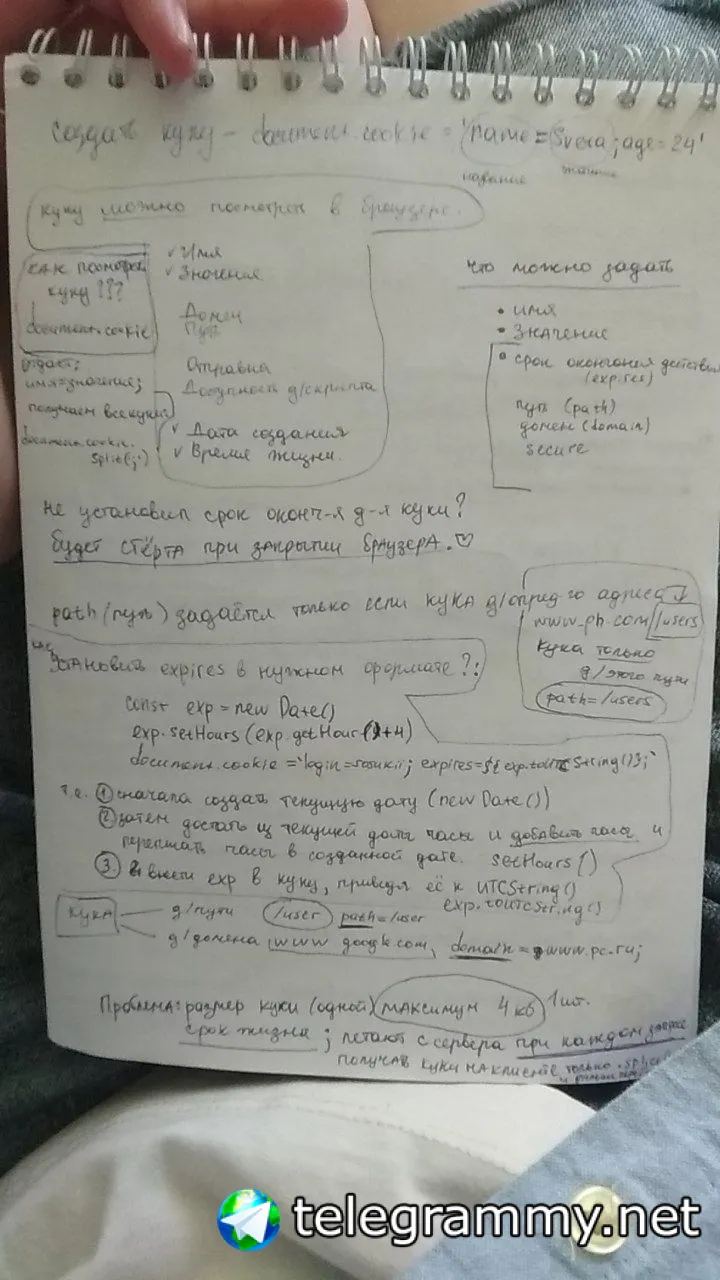 создать куку - document.cookie = 'name=Sveta; age=24'
название значение
куку можно посмотреть в браузере.
как посмотреть
куку???
document.cookie
выдаст:
имя=значение;
получаем все куки
document.cookie.
split(;)
✓ Имя
✓ Значения
Домен
Путь
Отправка
Доступность д/скрипта
✓ Дата создания
✓ Время жизни.
Что можно задать
• имя
• значение
• срок окончания действия
(expires)
путь (path)
домен (domain)
secure
не установил срок оконч-я д-я куки?
будет стёрта при закрытии браузера. ♡
path (путь) задаётся только если кука д/опред-го адреса ↓
www.ph.com/users
кука только
д/этого пути
path=/users
как
установить expires в нужном формате?:
const exp = new Date()
exp.setHours(exp.getHour()+4)
document.cookie = `login= expires=${exp.toUTCString()};`
т.е. ① сначала создать текущую дату (new Date())
② затем достать из текущей даты часы и добавить часы и
переписать часы в созданной дате. setHours()
③ внести exp в куку, приведя её к UTCString()
exp.toUTCString()
кука
д/пути /user path=/user
д/домена www.google.com, domain=www.pc.ru;
Проблема: размер куки (одной) максимум 4 кб 1 шт.
срок жизни; летают с сервера при каждом запросе
получав куки на клиенте только .split
telegrammy.net